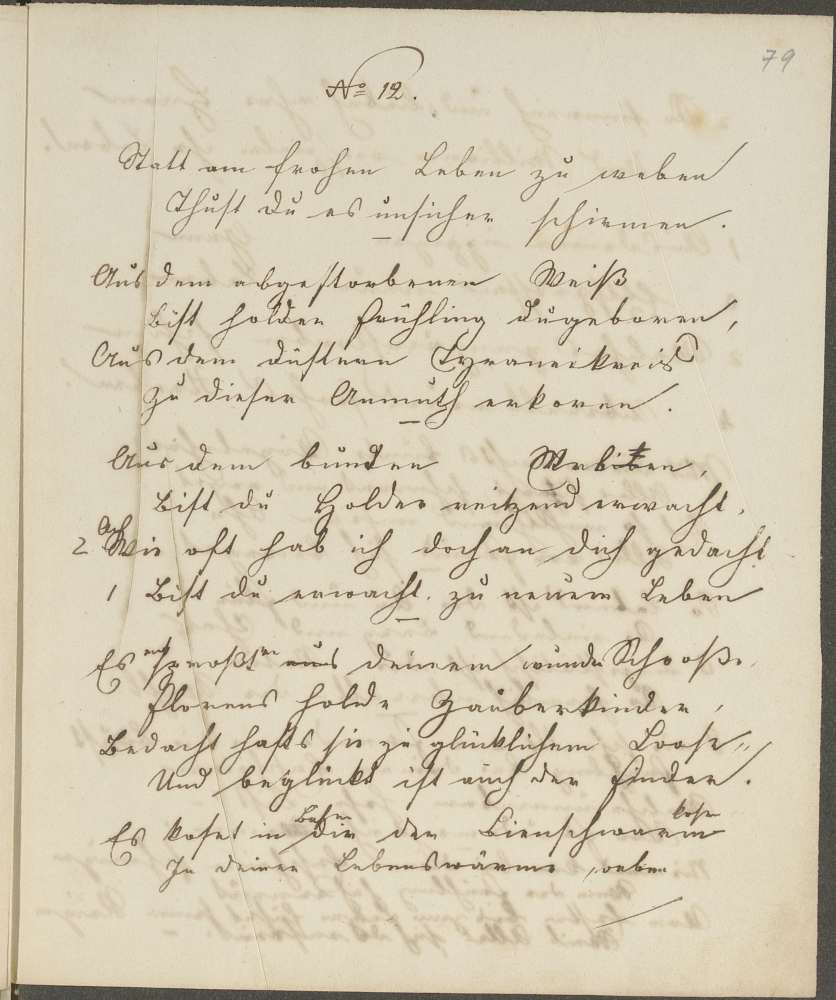 79
No 12.
Statt am frohen Leben zu weben
Thust du es unsicher schirmen.
Aus dem abgestorbenen Weiß
Bist holder Frühling dugeboren,
Aus dem düstern Tyraneikreis
Zu dieser Anmuth erkoren.
Aus dem bunten
Bist du Holder reitzend erwacht.
Ach
2 Wie oft hab ich doch an dich gedacht
1 Bist du erwacht. zu neuem Leben
Es aus deinem Schooße,
Florens holde Zauberkinder,
Bedacht hasts sie zu glücklichem Loose,,
Und beglückt ist auch der Finder.
Es koset in dir der Bienschwarm
In deiner Lebenswärme weben